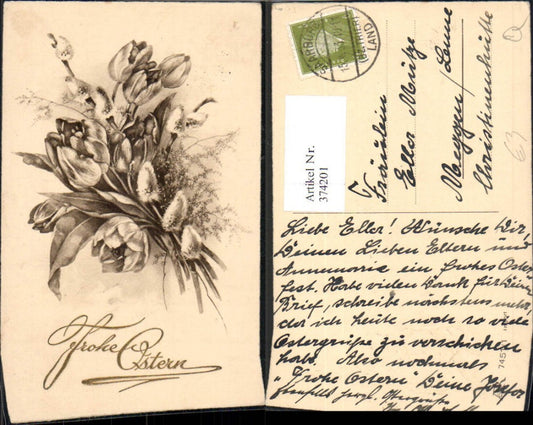 Frohe Ostern
SAARBRÜCKEN
LAND
Artikel Nr.
374201
Fräulein
Eller Mütze
Meggen/Lenne
Christinenhütte
63
Liebe Eller! Wünsche Dir,
Deinen Lieben Eltern und
Annemarie ein frohes Oster
fest. Habe vielen Dank für Deinen
Brief, schreibe nächstens mehr,
da ich heute noch so viele
Ostergrüße zu verschicken
habe. Also nochmals
"Frohe Ostern" Deine
745